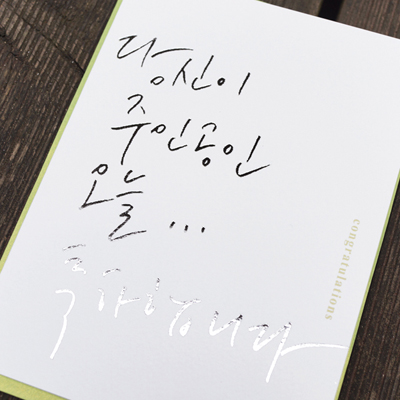 당신이
주인공인
오늘 ...
축하합니다
congratulations